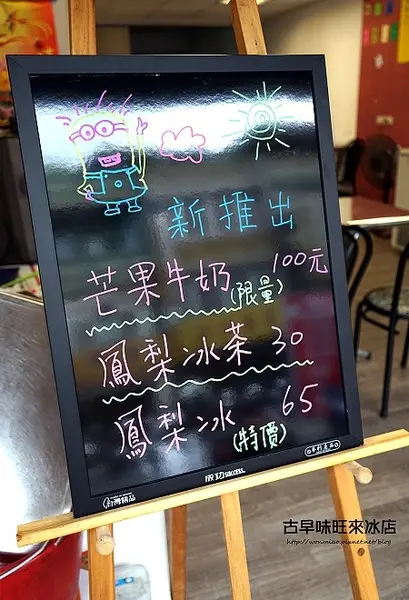 新推出
芒果牛奶 100元
(限量)
鳳梨冰茶 30
鳳梨冰 65
(特價)
成功 success.
台灣精品
古早味旺來冰店
http://wonmiao.pixnet.net/blog